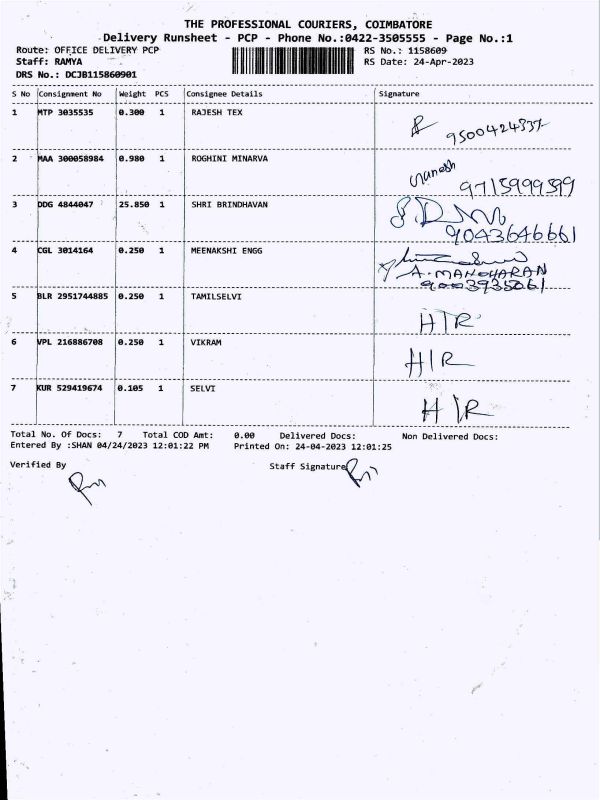 THE PROFESSIONAL COURIERS, COIMBATORE
Delivery Runsheet - PCP - Phone No.:0422-3505555 - Page No.:1
Route: OFFICE DELIVERY PCP RS No.: 1158609
Staff: RAMYA RS Date: 24-Apr-2023
DRS No.: DCJB115860901
S No Consignment No Weight PCS Consignee Details Signature
1 MTP 3035535 0.300 1 RAJESH TEX
2 MAA 300058984 0.980 1 ROGHINI MINARVA
Ganesh
9715999599
3 DDG 4844047 25.850 1 SHRI BRINDHAVAN
9043646661
4 CGL 3014164 0.250 1 MEENAKSHI ENGG
A. MANOHARAN
9003935061
5 BLR 2951744885 0.250 1 TAMILSELVI H/R
6 VPL 216886708 0.250 1 VIKRAM H/R
7 KUR 529419674 0.105 1 SELVI H/R
Total No. Of Docs: 7 Total COD Amt: 0.00 Delivered Docs: Non Delivered Docs:
Entered By :SHAN 04/24/2023 12:01:22 PM Printed On: 24-04-2023 12:01:25
Verified By Staff Signature